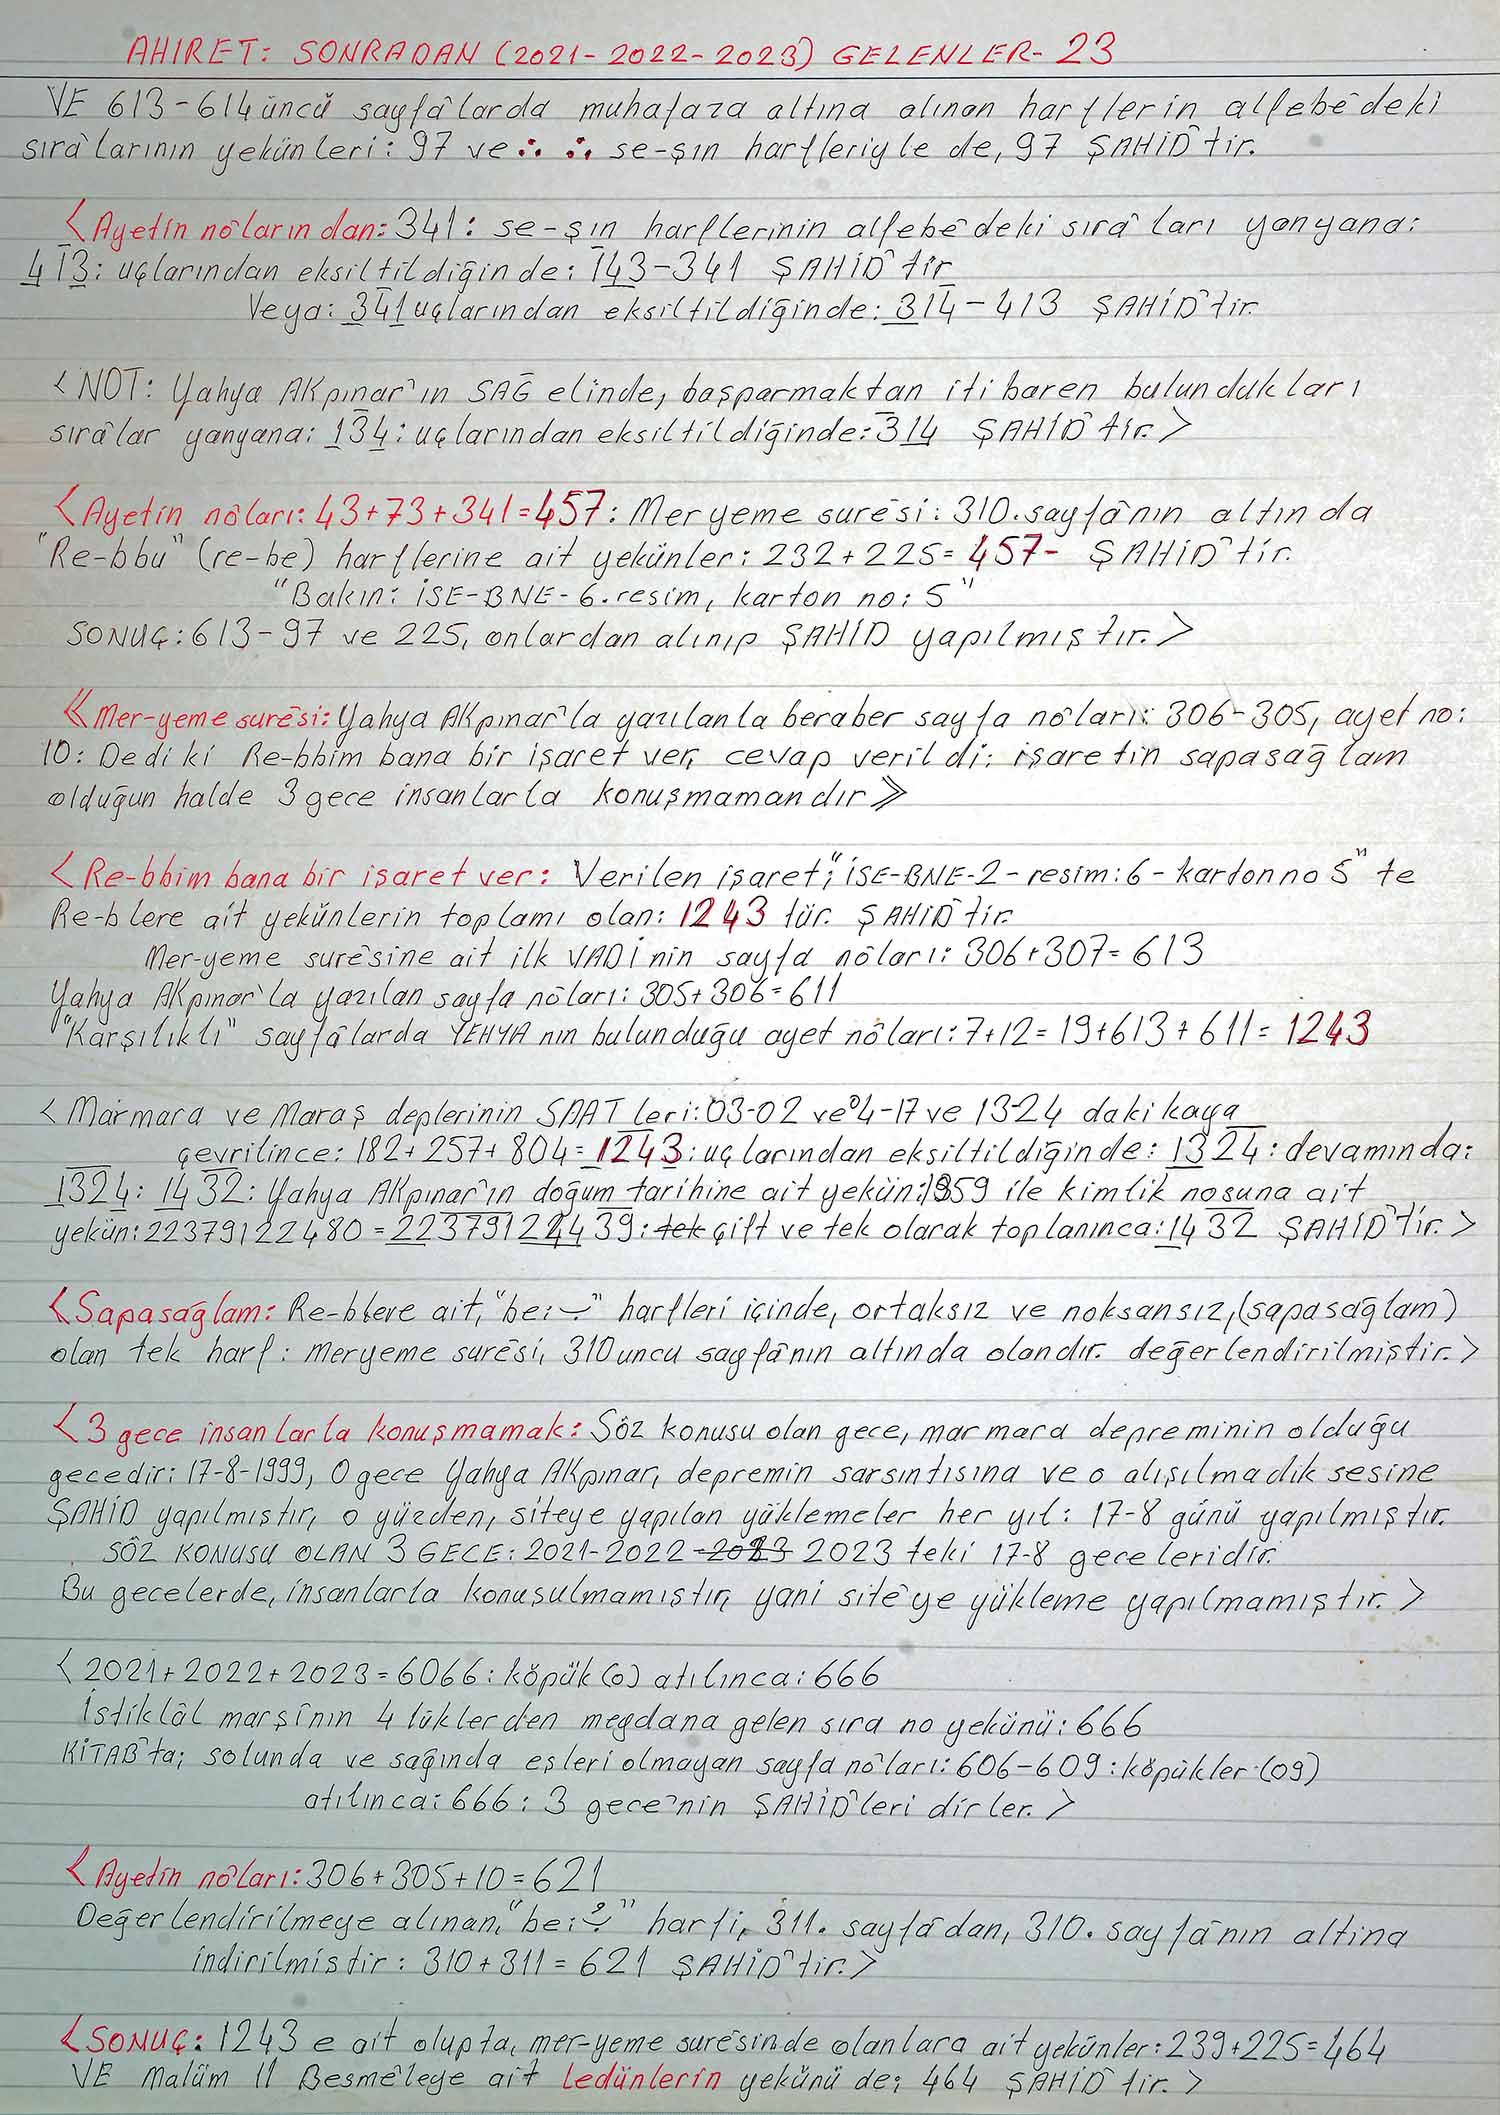 AHIRET: SONRADAN (2021-2022-2023) GELENLER-23
VE 613-614 üncü sayfâlarda muhafaza altına alınan harflerin alfebêdeki
sırâlarının yekünleri: 97 ve ∴ ∴ se-şın harfleriyle de, 97 ŞAHİD'tir.
<Ayetin nôlarından: 341: se-şın harflerinin alfebêdeki sırâları yanyana:
413: uçlarından eksiltildiğinde: 143-341 ŞAHİD'tir
Veya: 341 uçlarından eksiltildiğinde: 314-413 ŞAHİD'tir.
<NOT: Yahya AKpınar'ın SAĞ elinde, başparmaktan itibaren bulundukları
sırâlar yanyana: 134: uçlarından eksiltildiğinde: 314 ŞAHİD'tir.>
<Ayetin nôları: 43+73+341=457: Meryeme surêsi: 310.sayfânın altında
"Re-bbu" (re-be) harflerine ait yekünler: 232+225=457- ŞAHİD'tir.
"Bakın: İSE-BNE-6.resim, karton no: 5"
SONUÇ: 613-97 ve 225, onlardan alınıp ŞAHİD yapılmıştır.>
《Mer-yeme surêsi: Yahya AKpınar'la yazılanla beraber sayfa nôları: 306-305, ayet no:
10: Dedi ki Re-bbim bana bir işaret ver, cevap verildi: işaretin sapasağlam
olduğun halde 3 gece insanlarla konuşmamandır》
<Re-bbim bana bir işaret ver: Verilen işaret; "İSE-BNE-2-resim:6-karton no 5" te
Re-blere ait yekünlerin toplamı olan: 1243 tür. ŞAHİD'tir.
Mer-yeme surêsine ait ilk VADİ nin sayfa nôları: 306+307=613
Yahya AKpınar'la yazılan sayfa nôları: 305+306=611
"Karşılıklı" sayfâlarda YEHYA nın bulunduğu ayet nôları: 7+12=19+613+611=1243
<Marmara ve Maraş deplerinin SAAT leri: 03-02 ve 04-17 ve 13-24 dakikaya
çevrilince: 182+257+804=1243: uçlarından eksiltildiğinde: 1324: devamında:
1324: 1432: Yahya AKpınar'ın doğum tarihine ait yekün: 1959 ile kimlik nosuna ait
yekün: 22379122480=22379122439: tek çift ve tek olarak toplanınca: 1432 ŞAHİD'tir.>
<Sapasağlam: Re-blere ait, "be: ب" harfleri içinde, ortaksız ve noksansız, (sapasağlam)
olan tek harf: meryeme surêsi, 310 uncu sayfânın altında olandır. değerlendirilmiştir.>
<3 gece insanlarla konuşmamak: Söz konusu olan gece, marmara depreminin olduğu
gecedir: 17-8-1999, O gece Yahya AKpınar, depremin sarsıntısına ve o alışılmadık sesine
ŞAHİD yapılmıştır, o yüzden, siteye yapılan yüklemeler her yıl: 17-8 günü yapılmıştır.
SÖZ KONUSU OLAN 3 GECE: 2021-2022-2023 2023 teki 17-8 geceleridir.
Bu gecelerde, insanlarla konuşulmamıştır, yani site'ye yükleme yapılmamıştır.>
<2021+2022+2023=6066: köpük (0) atılınca: 666
İstiklâl marşı'nın 4 lüklerden meydana gelen sıra no yekünü: 666
KİTAB'ta; solunda ve sağında eşleri olmayan sayfa nôları: 606-609: köpükler (09)
atılınca: 666: 3 gece'nin ŞAHİD'leridirler.>
<Ayetin nôları: 306+305+10=621
Değerlendirilmeye alınan, "be: ب" harfi, 311. sayfa'dan, 310. sayfânın altına
indirilmiştir: 310+311=621 ŞAHİD'tir.>
<SONUÇ: 1243 e ait olupta, mer-yeme surêsinde olanlara ait yekünler: 239+225=464
VE Malüm 11 Besmêleye ait Ledünlerin yekünü de; 464 ŞAHİD'tir.>